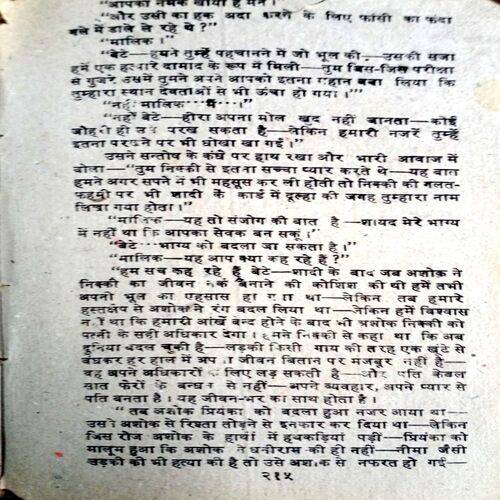 "आपका नमक खाया है मैंने।"
"और उसी का हक अदा करने के लिए फांसी का फंदा
गले में डाले ले रहे थे?"
"मालिक।"
"बेटे—हमने तुम्हें पहचानने में जो भूल की—उसकी सजा
हमें एक हत्यारे दामाद के रूप में मिली—तुम जिस-जिस परीक्षा
से गुजरे उसमें तुमने अपने आपको इतना महान बना लिया कि
तुम्हारा स्थान देवताओं से भी ऊंचा हो गया।"
"नहीं मालिक...मैं...।"
"नहीं बेटे—हीरा अपना मोल खुद नहीं जानता—कोई
जौहरी ही उसे परख सकता है—लेकिन हमारी नजरें तुम्हें
इतना परखने पर भी धोखा खा गईं।"
उसने सन्तोष के कंधे पर हाथ रखा और भारी आवाज में
बोला—"तुम निक्की से इतना सच्चा प्यार करते थे—यह बात
हमने अगर सपने में भी महसूस कर ली होती तो निक्की की गलत-
फहमी पर भी शादी के कार्ड में दूल्हा की जगह तुम्हारा नाम
लिखा गया होता।"
"मालिक—यह तो संजोग की बात है—शायद मेरे भाग्य
में नहीं था कि आपका सेवक बन सकूं।"
"बेटे...भाग्य को बदला जा सकता है।"
"मालिक—यह आप क्या कह रहे हैं?"
"हम सच कह रहे हैं बेटे—शादी के बाद जब अशोक ने
निक्की का जीवन नर्क बनाने की कोशिश की थी हमें तभी
अपनी भूल का एहसास हो गया था—लेकिन तब हमारे
हस्तक्षेप से अशोक ने रंग बदल लिया था—लेकिन हमें विश्वास
नहीं था कि हमारी आंखें बन्द होने के बाद भी अशोक निक्की को
पत्नी के सही अधिकार देगा। हमने निक्की से कहा था कि अब
दुनिया बदल चुकी है—लड़की किसी गाय की तरह एक खूंटे से
बंधकर हर हाल में अपना जीवन बिताने पर मजबूर नहीं है—
वह अपने अधिकारों के लिए लड़ सकती है—और पति केवल
सात फेरों के बन्धन से नहीं—अपने व्यवहार, अपने प्यार से
पति बनता है। यह जीवन-भर का साथ होता है।
"तब अशोक प्रियंका को बदला हुआ नजर आया था—
उसने अशोक से रिश्ता तोड़ने से इनकार कर दिया था—लेकिन
जिस रोज अशोक के हाथों में हथकड़ियां पड़ीं—प्रियंका को
मालूम हुआ कि अशोक ने धनीराम की ही नहीं—नीमा जैसी
लड़की की भी हत्या की है तो उसे अशोक से नफरत हो गई—
२१५